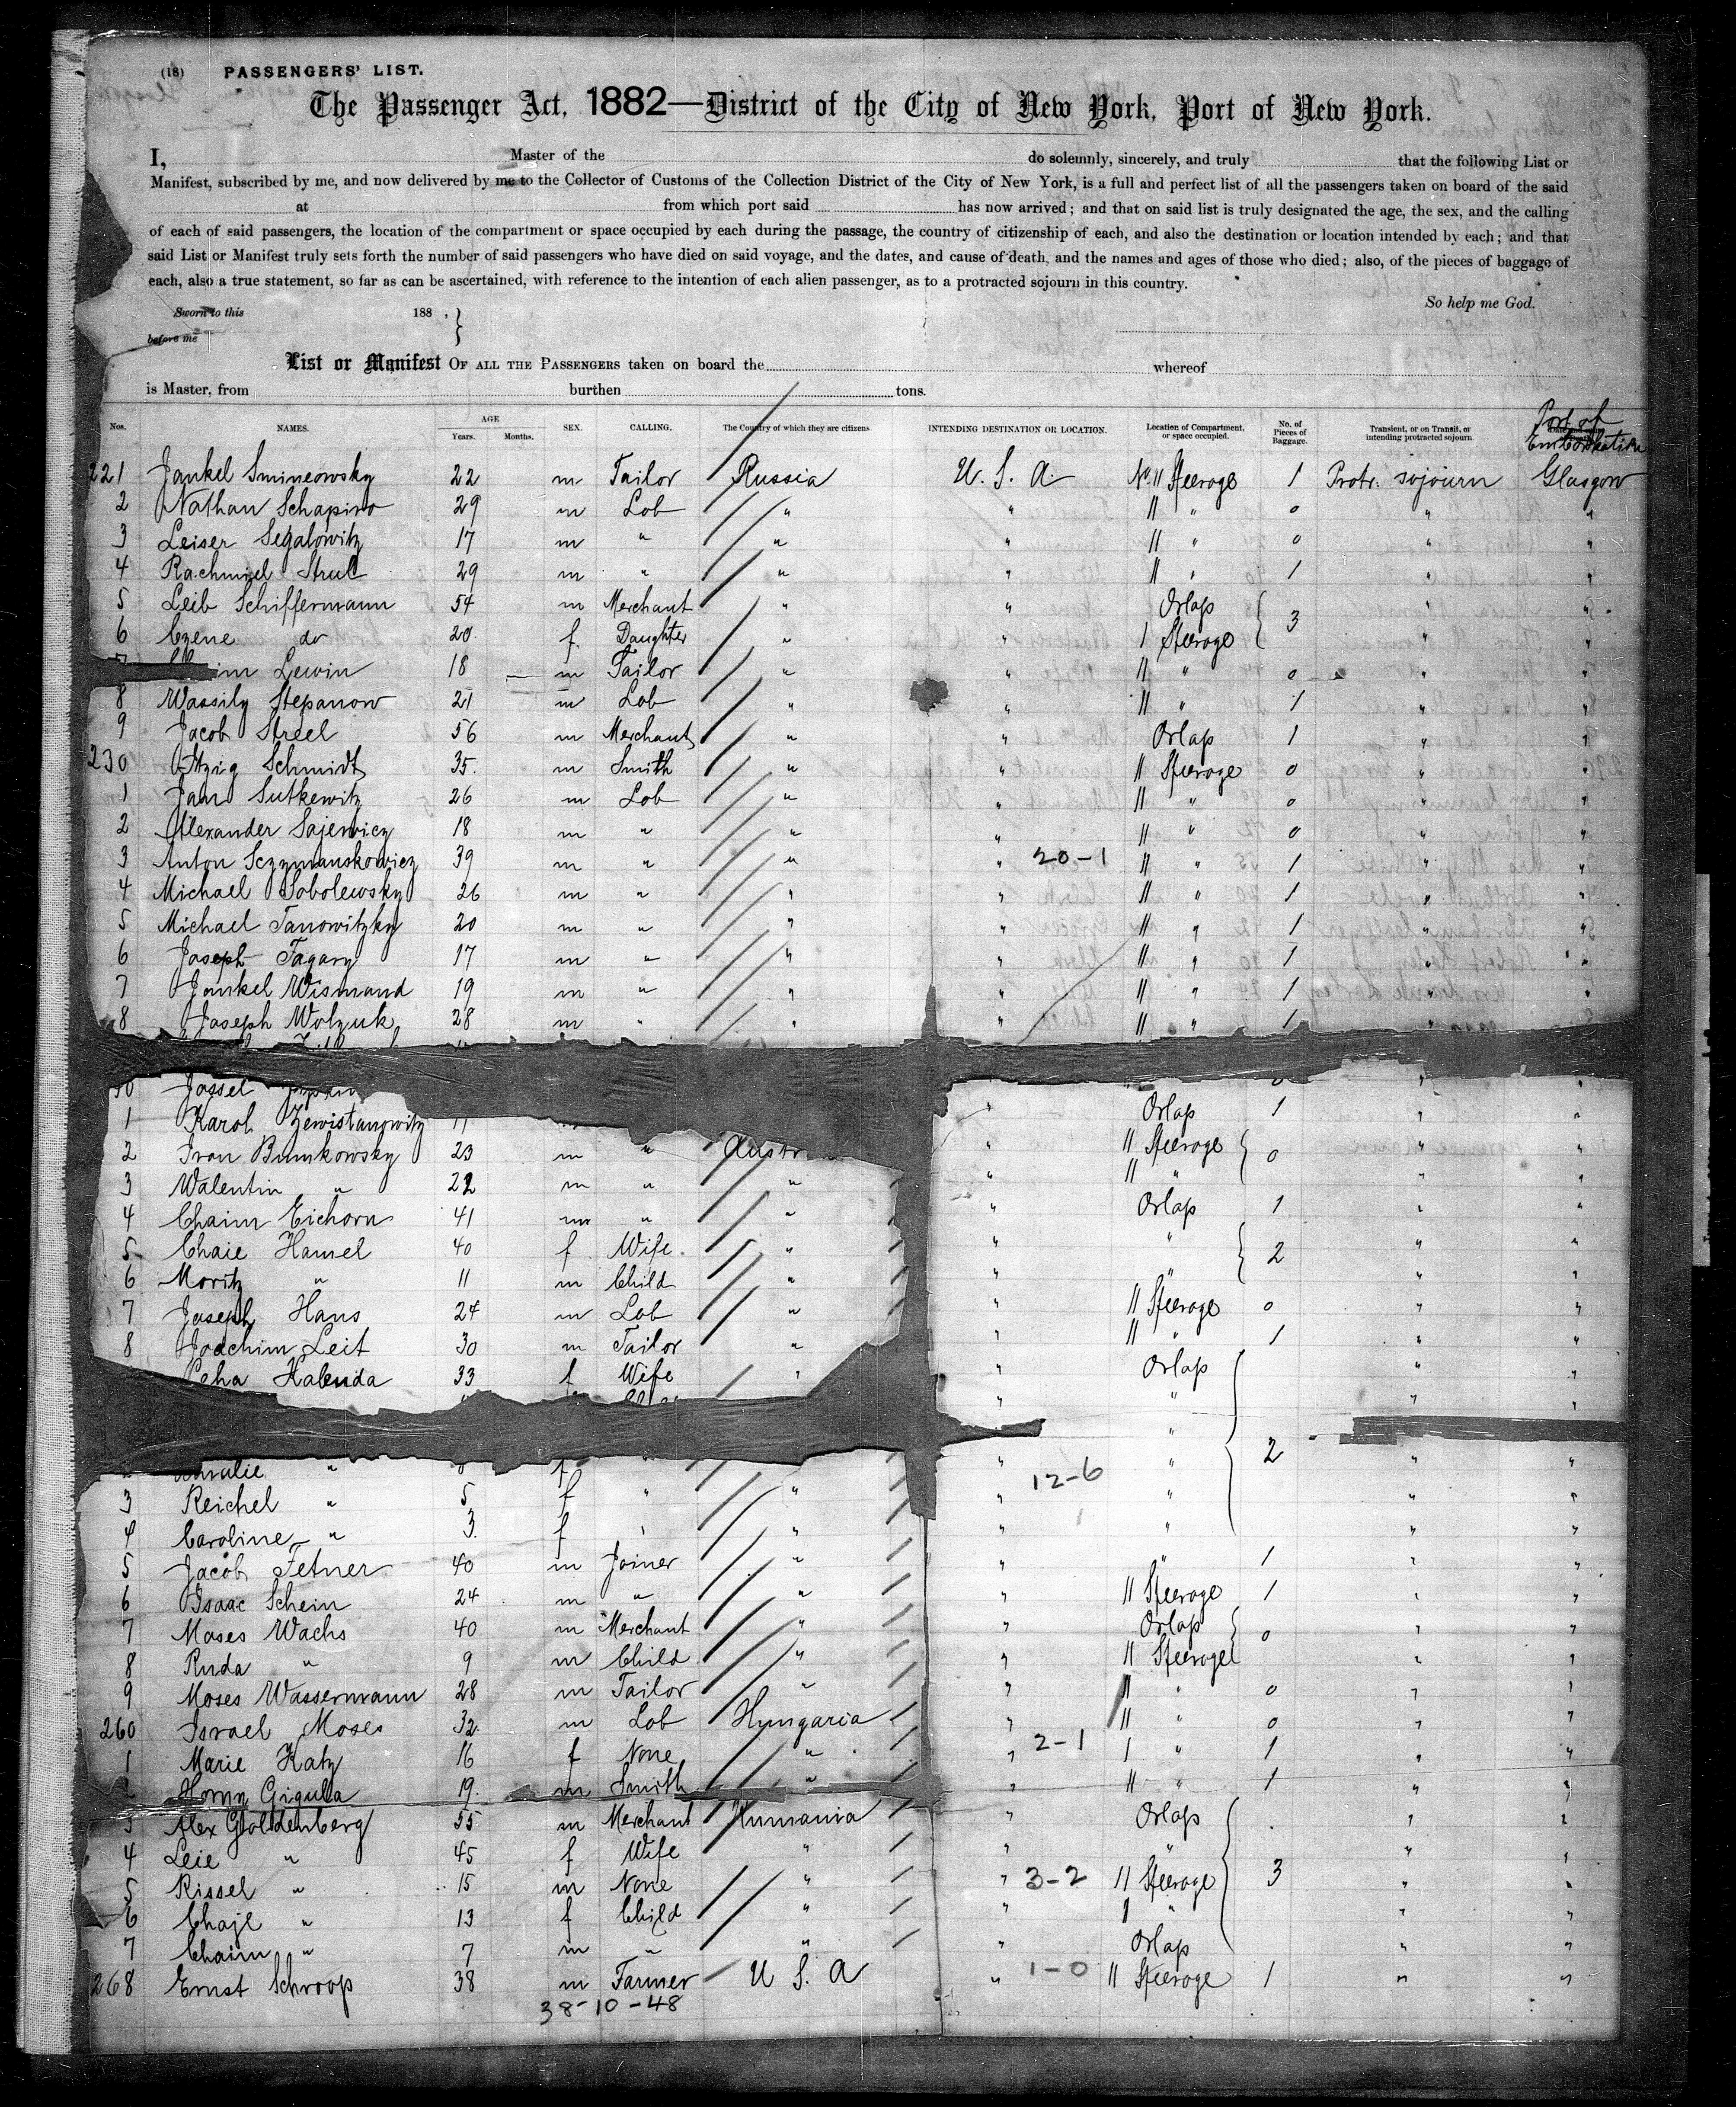 (18) PASSENGERS' LIST.
The Passenger Act, 1882—District of the City of New York, Port of New York.
I, Master of the do solemnly, sincerely, and truly that the following List or
Manifest, subscribed by me, and now delivered by me to the Collector of Customs of the Collection District of the City of New York, is a full and perfect list of all the passengers taken on board of the said
at from which port said has now arrived; and that on said list is truly designated the age, the sex, and the calling
of each of said passengers, the location of the compartment or space occupied by each during the passage, the country of citizenship of each, and also the destination or location intended by each; and that
said List or Manifest truly sets forth the number of said passengers who have died on said voyage, and the dates, and cause of death, and the names and ages of those who died; also, of the pieces of baggage of
each, also a true statement, so far as can be ascertained, with reference to the intention of each alien passenger, as to a protracted sojourn in this country.
So help me God.
Sworn to this 188 ,
before me
List or Manifest OF ALL THE PASSENGERS taken on board the whereof
is Master, from burthen tons.
Nos. NAMES. AGE Years. Months. SEX. CALLING. The Country of which they are citizens. INTENDING DESTINATION OR LOCATION. Location of Compartment, or space occupied. No. of Pieces of Baggage. Transient, or on Transit, or intending protracted sojourn. Port of Embarkation
221 Jankel Smineowsky 22 m Tailor Russia U. S. A. No. 11 Steerage 1 Protr. sojourn Glasgow
2 Nathan Schapiro 29 m Lab " " 11 " 0 " "
3 Leiser Segalowitz 17 m " " " 11 " 0 " "
4 Rachmiel Strul 29 m " " " 11 " 1 " "
5 Leib Schiffermann 54 m Merchant " " Orlop 3 " "
6 do 20 f Daughter " " 1 Steerage " "
Lewin 18 m Tailor " " 11 " 0 " "
8 Wassily Stepanow 21 m Lab " " 11 " 1 " "
9 Jacob Streel 56 m Merchant " " Orlop 1 " "
230 Itzig Schmidt 35 m Smith " " 11 Steerage 0 " "
1 Jan Sutkewitz 26 m Lab " " 11 " 0 " "
2 Alexander Sajewicz 18 m " " " 11 " 0 " "
3 Anton Sczymanskowicz 39 m " " " 20-1 11 " 1 " "
4 Michael Sobolewsky 26 m " " " 11 " 1 " "
5 Michael Janowitzky 20 m " " " 11 " 1 " "
6 Joseph Fagary 17 m " " " 11 " 1 " "
7 Jankel Wismand 19 m " " " 11 " 1 " "
8 Joseph Wolzuk 28 m " " " 11 " 1 " "
Jossel " "
1 Karol Zewistanowitz " Orlop 1 " "
2 Ivan Bumkowsky 23 m " Austr " 11 Steerage 0 " "
3 Walentin " 22 m " " " 11 " " "
4 Chaim Eichorn 41 m " " " Orlop 1 " "
5 Chaie Hamel 40 f Wife " " " 2 " "
6 Moritz " 11 m Child " " " " "
7 Joseph Hans 24 m Lab " " 11 Steerage 0 " "
8 Joachim Leit 30 m Tailor " " 11 " 1 " "
Habuda 33 f Wife " " Orlop " "
" " 2
" f " " 12-6 " " "
3 Reichel " 5 f " " " " " "
4 Caroline " 3 f " " " " " "
5 Jacob Fetner 40 m Joiner " " " 1 " "
6 Isaac Schein 24 m " " " 11 Steerage 1 " "
7 Moses Wachs 40 m Merchant " " Orlop 0 " "
8 Ruda " 9 m Child " " 11 Steerage " "
9 Moses Wassermann 28 m Tailor " " 11 " 0 " "
260 Israel Moses 32 m Lab Hungaria " 11 " 0 " "
1 Marie Katz 16 f None " " 2-1 1 " 1 " "
Gigula 19 m Smith " " 11 " 1 " "
3 Alex Goldenberg 55 m Merchant Rumania " Orlop " "
4 Leie " 45 f Wife " " " " "
5 Rissel " 15 m None " " 3-2 11 Steerage 3 " "
6 Chaje " 13 f Child " " 1 " " "
7 Chaim " 7 m " " " Orlop " "
268 Ernst Schroop 38 m Farmer U. S. A " 1-0 11 Steerage 1 " "
38-10-48